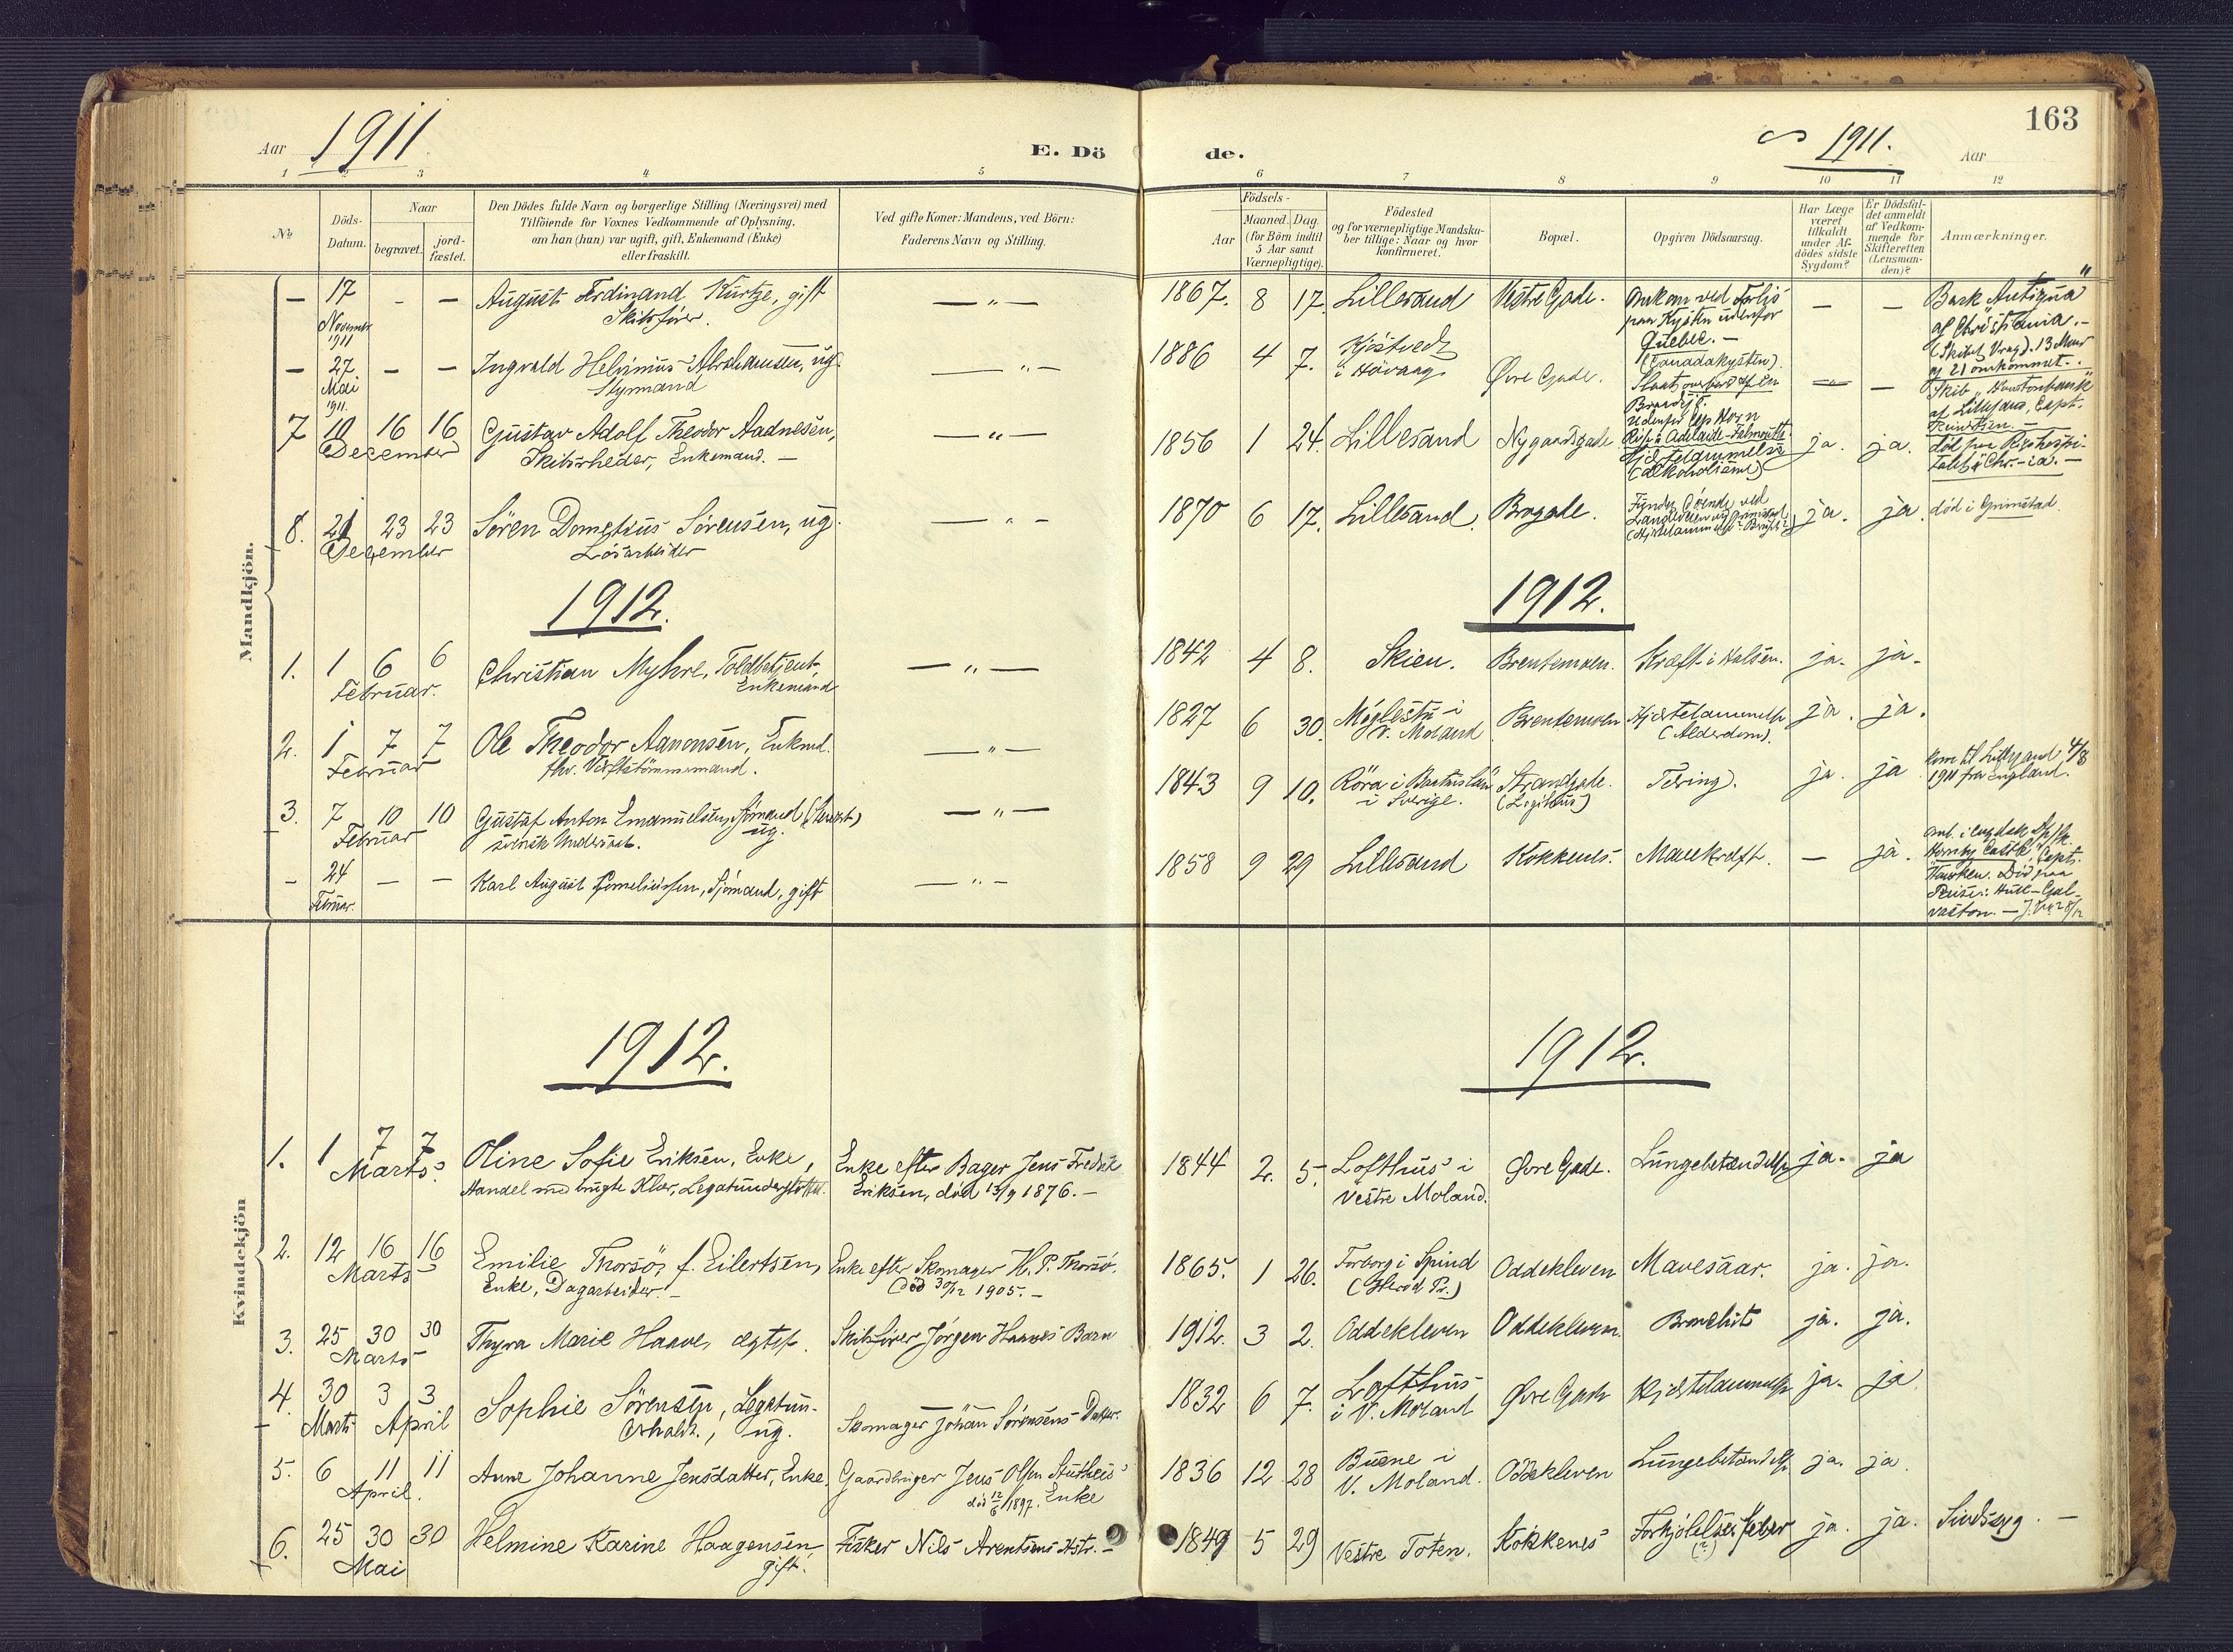 163
Aar 1911. E. Dö de. 1911. Aar
1 2 3 4 5 6 7 8 9 10 11 12
No
Döds-
Datum.
Naar
begravet.
jord-
fæstet.
Den Dödes fulde Navn og borgerlige Stilling (Næringsvei) med
Tilföiende for Voxnes Vedkommende af Oplysning,
om han (hun) var ugift, gift, Enkemand (Enke)
eller fraskilt.
Ved gifte Koner: Mandens, ved Börn:
Faderens Navn og Stilling.
Födsels-
Aar
Maaned. Dag.
(for Börn indtil
5 Aar samt
Værnepligtige).
Födested
og for værnepligtige Mandska-
ber tillige: Naar og hvor
konfirmeret.
Bopæl.
Opgiven Dödsaarsag.
Har Læge
været
tilkaldt
under Af-
dödes sidste
Sygdom?
Er Dödsfal-
det anmeldt
af Vedkom-
mende for
Skifteretten
(Lensman-
den)?
Anmærkninger.
Mandkjön.
– 17 – – August Ferdinand Kurtze, gift — " — 1867. 8 17. Lillesand Vestre Gade. Omkom ved Forlis — — Bark "Antigua"
November 1911 Skibsfører. paa Kysten udenfor Quebec. – (Canadakysten). af Christiania. – (Skibet Vrag). 13 Mand af 21 omkommet. –
– 27. – – Ingvald Helvinius Abrahamsen, ug. — " — 1886 4 7. Kjøstvedt i Høvaag. Øvre Gade. Slaat overbord af en Braadsjø. — " — — Skib "
Mai 1911. Styrmand af Lillesand, Capt.
7 10 16 16 Gustav Adolf Theodor Aadnesen, — " — 1856 1 24. Lillesand Nygaardsgade. ja. ja. død paa
December Skibsrheder, Enkemand. – Udenfor Cap Horn Reise Adelaide–Falmouth. Hjertelammelse (alkoholisme)
8. 21 23 23 Søren Dometius Sørensen, ug. — " — 1870 6 17. Lillesand. Brogade. ja. ja. død i Grimstad.
December Løsarbeider
1912. 1912.
1. 1 6 6 Christian Myhre, Toldbetjent, — " — 1842 4 8. Skien. Brentemoen. Kræft i Halsen. ja. ja.
Februar. Enkemand
2. 1 7 7 Ole Theodor Aanonsen, Enkmd. — " — 1827 6 30. Møglestu i V. Moland Brentemoen Hjertelammelse (Alderdom). ja. ja.
Februar fhv. Verftstømmermand.
3. 7 10 10 Gustaf Anton Emanuelsen, Sømand — " — 1843 9 10. Röra i Bohuslän i Sverige. Strandgade. (Logihus) Tæring. ja. ja kom til Lillesand 4/8 1911 fra England.
Februar ug. svensk Undersaat.
– 24 – – Karl August Corneliussen, Sjømand, gift — " — 1858 9 29 Lillesand Kokkenes. Mavekræft. — ja. omb. i engelsk
Februar. Hornby Castle, Capt. Død paa Reise: Hull–Galvaston. –
Kvindekjön
1912. 1912.
1. 1 7 7 Oline Sofie Eriksen, Enke, Enke efter Bager Jens Fredrik 1844 2. 5. Lofthus i Øvre Gade. Lungebetændelse ja. ja
Marts. Handel med brugte Klær, Legatunderstøttet. Eriksen, død 13/9 1876. – Vestre Moland.
2. 12 16 16 Emilie Thorsø, f. Eilertsen, Enke efter Skomager H. P. Thorsø. 1865. 1 26. Forborg i Spind Oddekleven Mavesaar. ja. ja.
Marts Enke, Dagarbeider. – død 30/12 1905. – (Herad Pr.)
3. 25 30 30 Thyra Marie Haave, ægtef. Skibsfører Jørgen Haaves Barn 1912. 3 2. Oddekleven Oddekleven. Bronchit ja. ja.
Marts
4. 30 3 3 Sophie Sørensen, Legatun- Skomager Johan Sørensens Datter. 1832 6 7. Lofthus Øvre Gade Hjertelammelse ja. ja
Marts April derhold., ug. i V. Moland
5. 6 11 11 Anne Johanne Jensdatter, Enke. Gaardbruger Jens Olsen Stutheis 1836 12 28 Buene i Oddekleven Lungebetændelse ja. ja.
April. død 12/6 1897. Enke V. Moland.
6. 25 30 30 Helmine Karine Haagensen, Fisker Nils Arentsens Hstr. – 1849 5 29 Vestre Toten. Kokkenes Forkjølelsesfeber ja. ja. Sindssyg. –
Mai gift. (?)